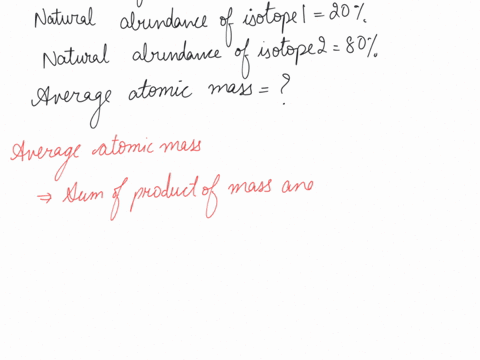 Natural abundance of isotope 1 = 20%.
Natural abundance of isotope 2 = 80%.
Average atomic mass = ?
Average atomic mass
⇒ Sum of product of mass ane